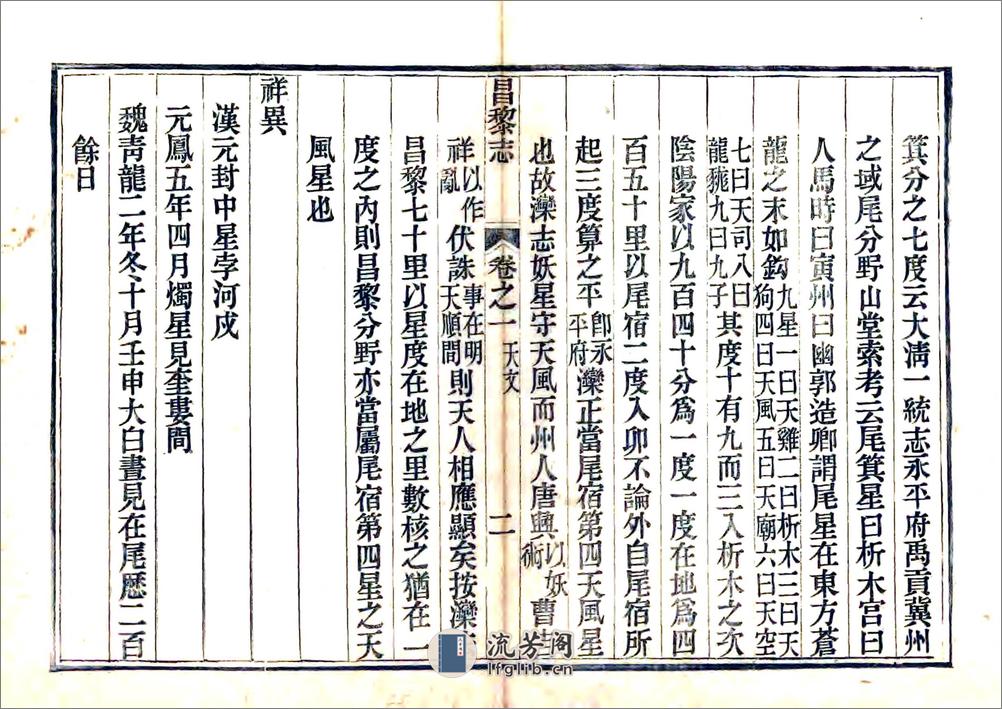 箕分之七度云大清一統志永平府禹貢冀州
之域尾分野山堂索考云尾箕星曰析木宮曰
人馬時曰寅州曰幽郭造卿謂尾星在東方蒼
龍之末如鈎九星一曰天雞二曰析木三曰天狗四曰天風五曰天廟六曰天空
七曰天司八曰龍九曰九子其度十有九而三入析木之次
陰陽家以九百四十分爲一度一度在地爲四
百五十里以尾宿二度入卯不論外自尾宿所
起三度算之平即永平府灤正當尾宿第四天風星
也故灤志妖星守天風而州人唐興以妖術曹
昌黎志 卷之一 天文 二
祥以作亂伏誅事在明天順間則天人相應顯矣按灤
昌黎七十里以星度在地之里數核之猶在一
度之內則昌黎分野亦當屬尾宿第四星之天
風星也
祥異
漢元封中星孛河戍
元鳳五年四月燭星見奎婁間
魏青龍二年冬十月壬申大白晝見在尾歷二百
餘日
流芳閣
lfglib.cn